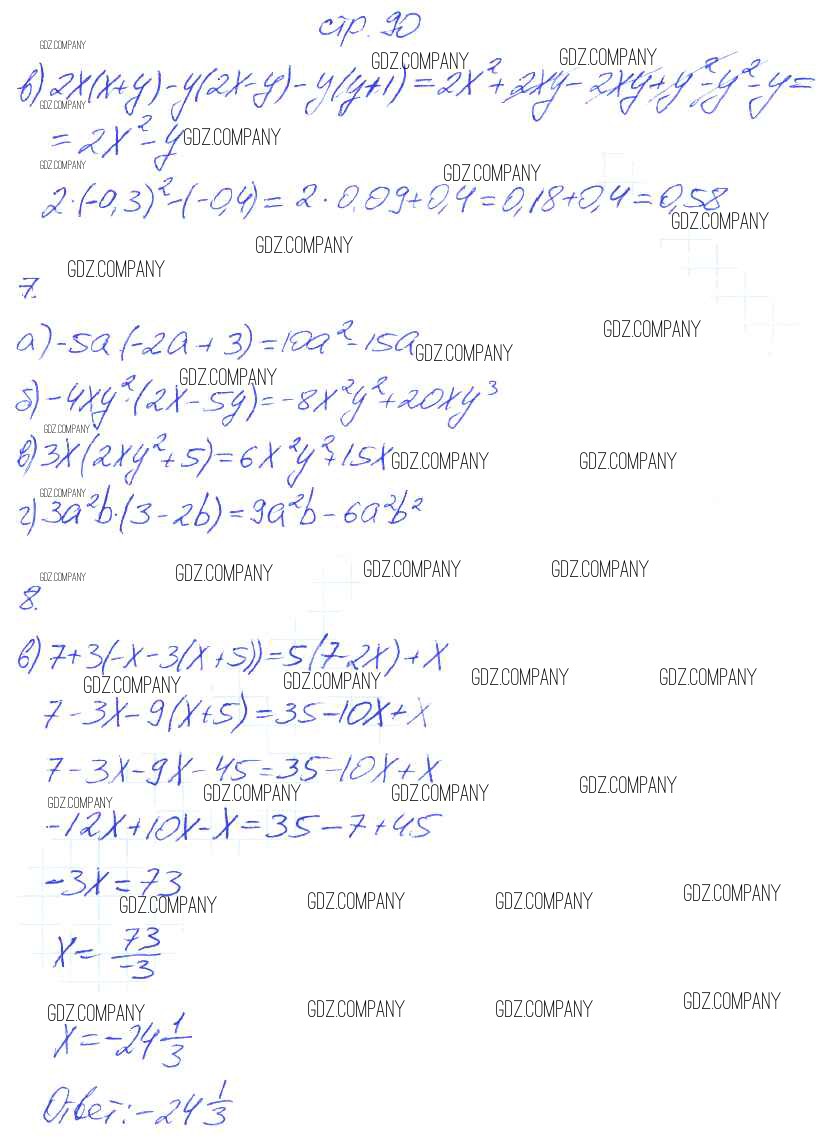 стр. 90
GDZ.COMPANY
GDZ.COMPANY GDZ.COMPANY
в) 2x(x+y)-y(2x-y)-y(y+1)=2x²+2xy-2xy+y²-y²-y=
GDZ.COMPANY
=2x²-y GDZ.COMPANY
GDZ.COMPANY GDZ.COMPANY
2·(-0,3)²-(-0,4)=2·0,09+0,4=0,18+0,4=0,58
GDZ.COMPANY
GDZ.COMPANY
GDZ.COMPANY
7.
GDZ.COMPANY
а) -5a·(-2a+3)=10a²-15a
GDZ.COMPANY
GDZ.COMPANY
б) -4xy²·(2x-5y)=-8x²y²+20xy³
GDZ.COMPANY
в) 3x(2xy²+5)=6x²y²+15x GDZ.COMPANY GDZ.COMPANY
GDZ.COMPANY
г) 3a²b·(3-2b)=9a²b-6a²b²
GDZ.COMPANY GDZ.COMPANY GDZ.COMPANY GDZ.COMPANY
8.
в) 7+3(-x-3(x+5))=5(7-2x)+x
GDZ.COMPANY GDZ.COMPANY GDZ.COMPANY GDZ.COMPANY
7-3x-9(x+5)=35-10x+x
7-3x-9x-45=35-10x+x
GDZ.COMPANY GDZ.COMPANY GDZ.COMPANY
GDZ.COMPANY
-12x+10x-x=35-7+45
-3x=73
GDZ.COMPANY GDZ.COMPANY GDZ.COMPANY GDZ.COMPANY
x=73/-3
GDZ.COMPANY GDZ.COMPANY GDZ.COMPANY GDZ.COMPANY
x=-24 1/3
Ответ: -24 1/3